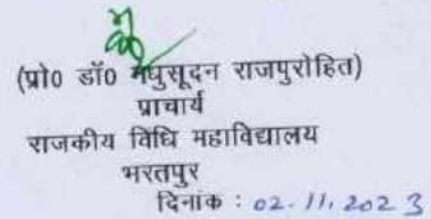 (प्रो0 डॉ0 मधुसूदन राजपुरोहित)
प्राचार्य
राजकीय विधि महाविद्यालय
भरतपुर
दिनांक : 02.11.2023